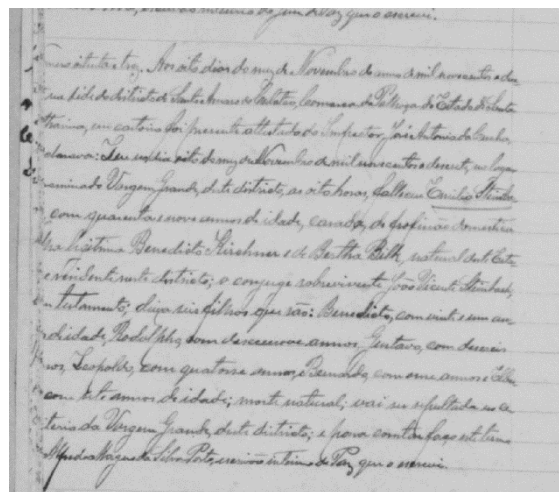 que o escrevi.
mero oitenta e trez. Aos oito dias do mez de Novembro do anno de mil novecentos e
sede do districto de Santo Amaro do Cubatão, Comarca da Palhoça, do Estado de Santa
Catharina, em cartorio foi presente attestado do Inspector José Antonio da Cunha,
dia oito do mez de Novembro de mil novecentos e dezesete, no logar
Vargem Grande, deste districto, as oito horas, falleceu Emilia
com quarenta e nove annos de idade, casada, de profissão domestica
filha legitima Benedicto Kirchner e de Bertha natural deste
e residente neste districto; o conjuge sobrevivente João Vicente
testamento; deixa seis filhos que são: Benedicto, com vinte e um an
de idade, Rodolpho, com desenove annos, Gustavo, com deseseis
nos, Leopoldo, com quatorse annos, Bernardo, com onse annos e
com sete annos de idade; morte natural; vai ser sepultada no ce
terio da Vargem Grande, deste districto; e para constar faço este termo
Alfredo da Silva Porto, escrivão interino de Paz, que o escrevi.